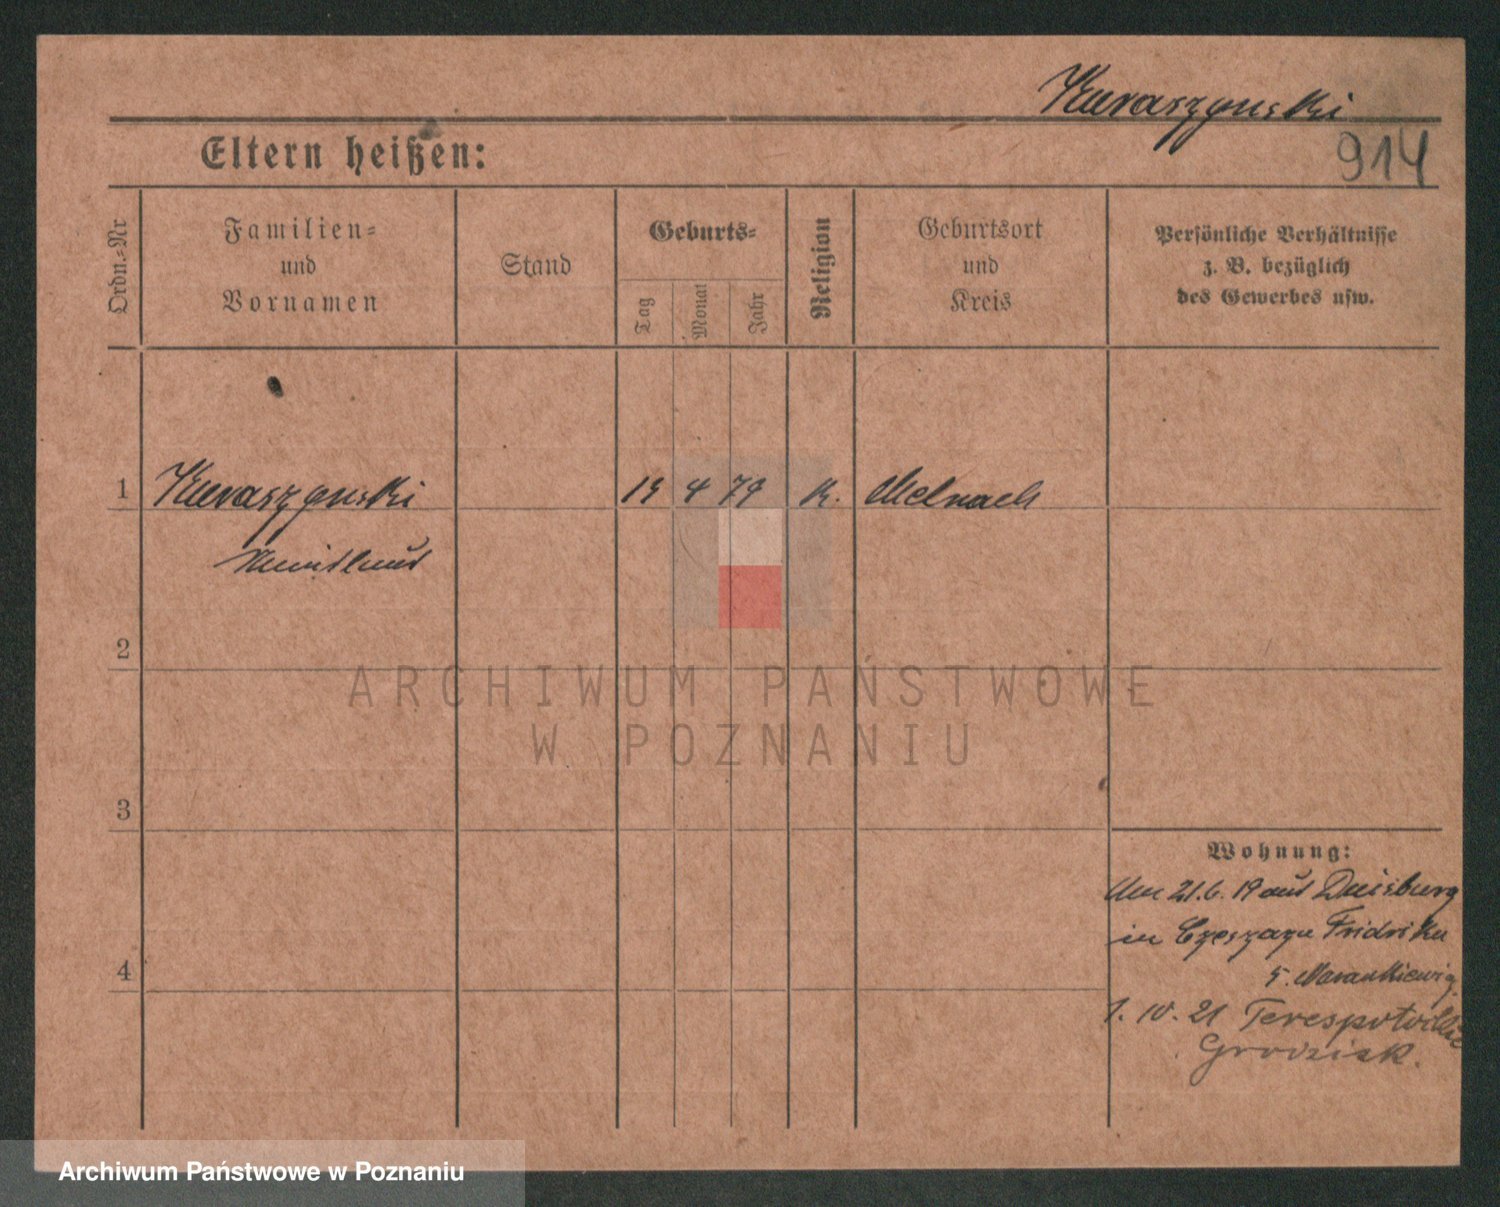 Kuraszynski
914
Eltern heißen:
Ordn.-Nr
Familien-
und
Vornamen
Stand
Geburts-
Tag
Monat
Jahr
Religion
Geburtsort
und
Kreis
Persönliche Verhältnisse
z. B. bezüglich
des Gewerbes usw.
1 Kuraszynski 4 79 K.
2
3
4
Wohnung:
21.6.19 aus Duisburg
in
5.
1.10.21
Grodzisk.
ARCHIWUM PAŃSTWOWE
W POZNANIU
Archiwum Państwowe w Poznaniu